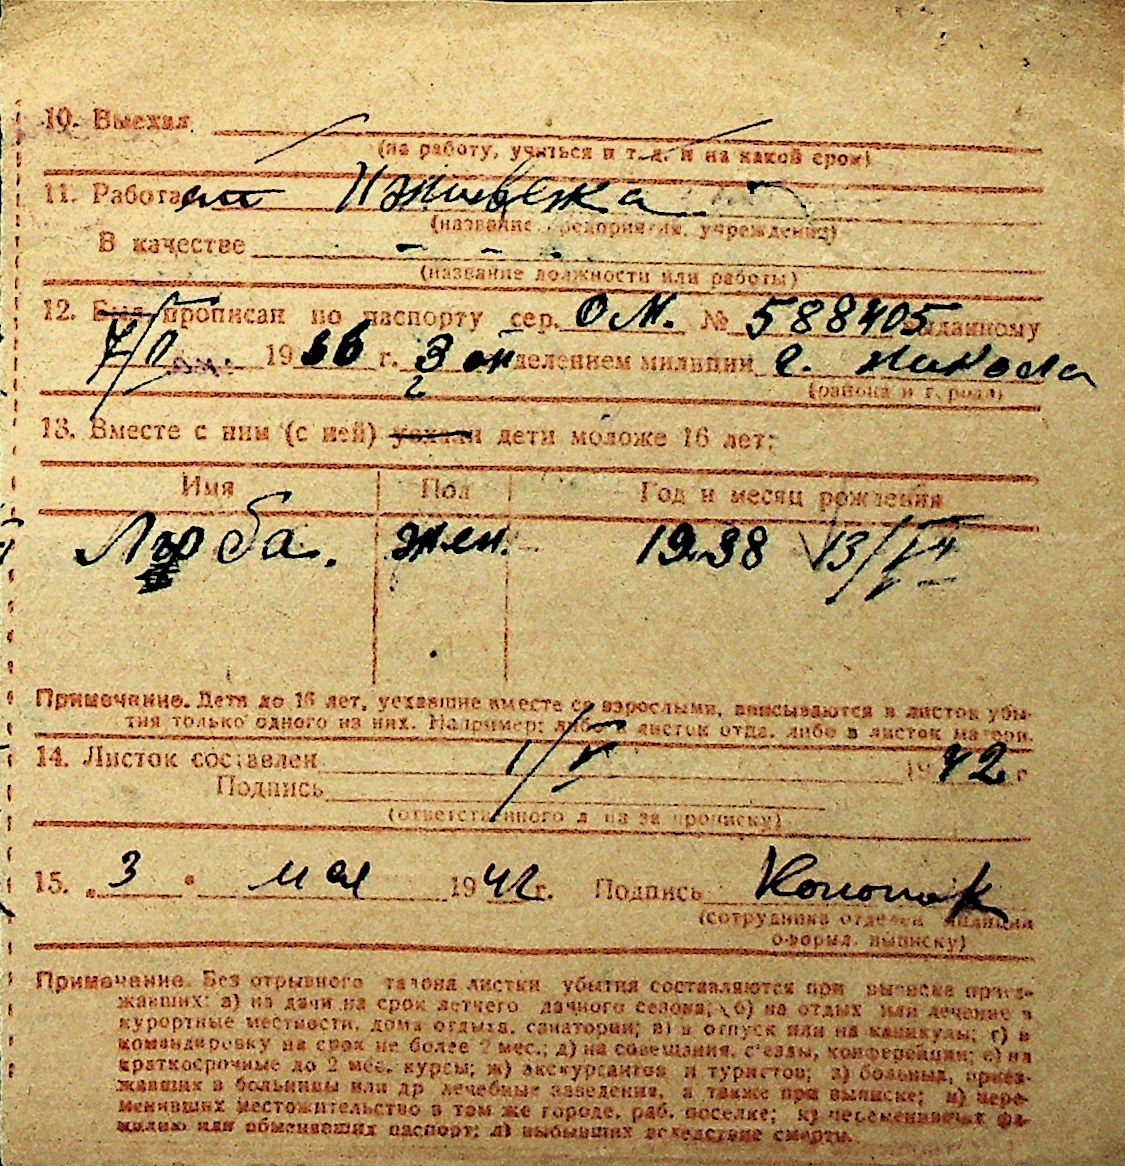 10. Выехал
(на работу, учиться и т. д. и на какой срок)
11. Работа ет Иждивенка
(название предприятия, учреждения)
В качестве - - -
(название должности или работы)
12. Был прописан по паспорту сер. ОМ. № 588405 выданному
19 36 г. 3 от делением милиции г.
(района и города)
13. Вместе с ним (с ней) уехали дети моложе 16 лет:
Имя Пол Год и месяц рождения
Люба. жен. 1938 13/VII
Примечание. Дети до 16 лет, уехавшие вместе со взрослыми, вписываются в листок убы-
тия только одного из них. Например: либо в листок отца, либо в листок матери.
14. Листок составлен 1/V 1942 г
Подпись
(ответственного л на за прописку)
15. „3" мая 1942 г. Подпись
(сотрудника отделен милиции
оформл. выписку)
Примечание. Без отрывного талона листки убытия составляются при выписке приез-
жавших: а) на дачи на срок летнего дачного сезона; б) на отдых или лечение в
курортные местности, дома отдыха, санатории; в) в отпуск или на каникулы; г) в
командировку на срок не более 2 мес.; д) на совещания, с'езды, конференции; е) на
краткосрочные до 2 мес. курсы; ж) экскурсантов и туристов; з) больных, приез-
жавших в больницы или др лечебные заведения, а также при выписке; и) пере-
менивших местожительство в том же городе, раб. поселке; к) переменивших фа-
милию или обменявших паспорт; л) выбывших вследствие смерти.